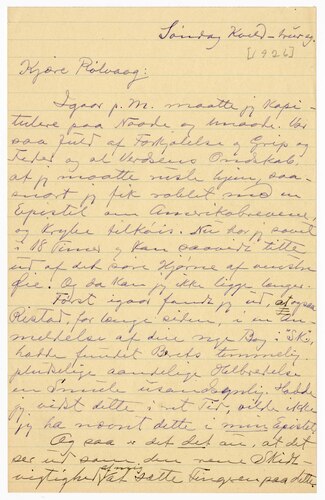 Søndag Kveld - hver og.
[1926]
Kjære Rølvaag:
Igaar p.m. maatte jeg kapi-
tulere paa Naade og Unaade. Var
saa fuld af Forkjølelse og Grip og
Feber og al Verdens Ondskab,
at jeg maatte rusle hjem, saa-
snart jeg fik rablet ned en
Epistel om Amerikabrevene,
og krybe tilkøis. Nu har jeg sovet
i 18 Timer og kan saavidt titte
ud af det søre Hjørne af venstre
Øie. Og saa kan jeg ikke ligge længer.
Først igaar fandt jeg ud, at ogsaa
Ristad, for længe siden, i en An-
meldelse af den nye Bog i "Ski",
hadde fundet Boits temmelig
pludselige aandelige Helbredelse
en Smule usandsynlig. Hadde
jeg vidst dette i ret Tid, vilde ikke
jeg ha nævnt dette i min Epistel.
Og saa er det det da, at det
ser ud som den rene Skidt
vigtighed at sætte Fingren paa dette